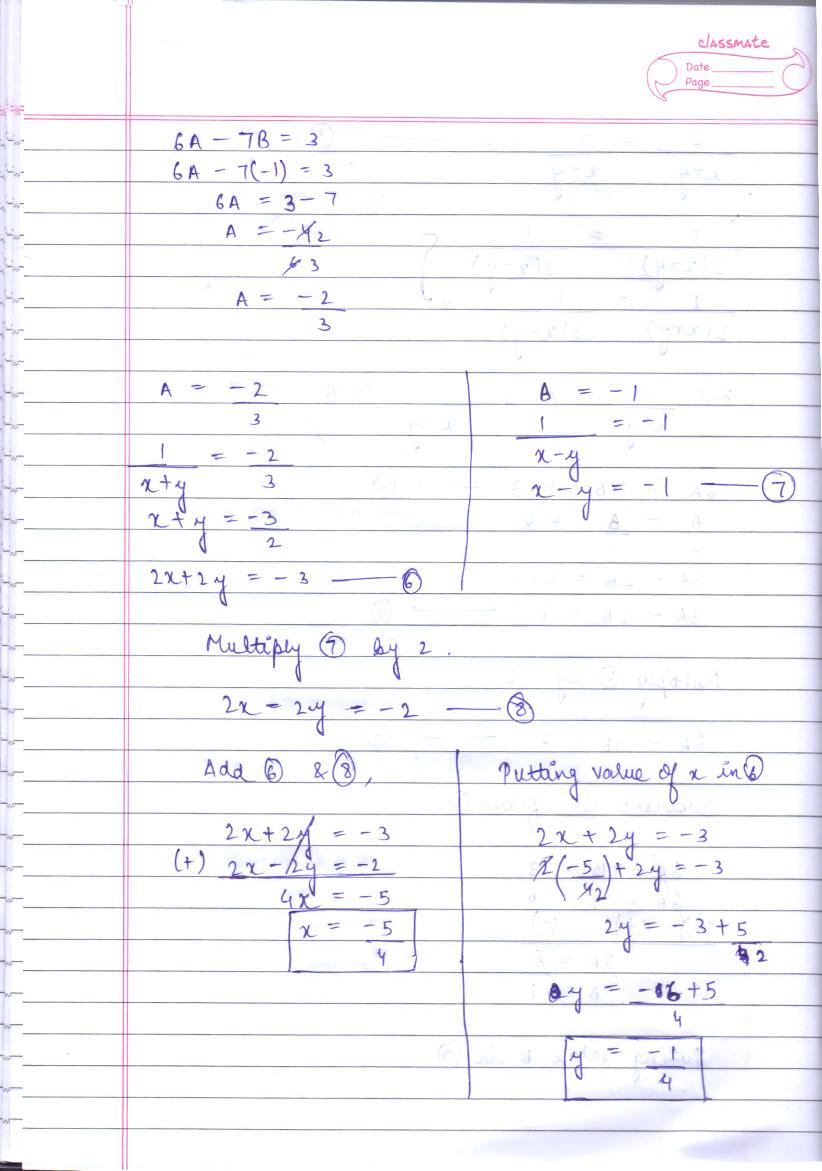 classmate
Date
Page
6A - 7B = 3
6A - 7(-1) = 3
6A = 3 - 7
A = -4 2
6 3
A = -2
3
A = -2
3
1 = -2
x+y 3
x+y = -3
2
2x+2y = -3 —— ⑥
B = -1
1 = -1
x-y
x-y = -1 —— ⑦
Multiply ⑦ by 2.
2x - 2y = -2 —— ⑧
Add ⑥ & ⑧,
2x+2y = -3
(+) 2x-2y = -2
4x = -5
x = -5
4
Putting value of x in ⑥
2x + 2y = -3
2(-5) + 2y = -3
4 2
2y = -3 + 5
2
y = -6+5
4
y = -1
4